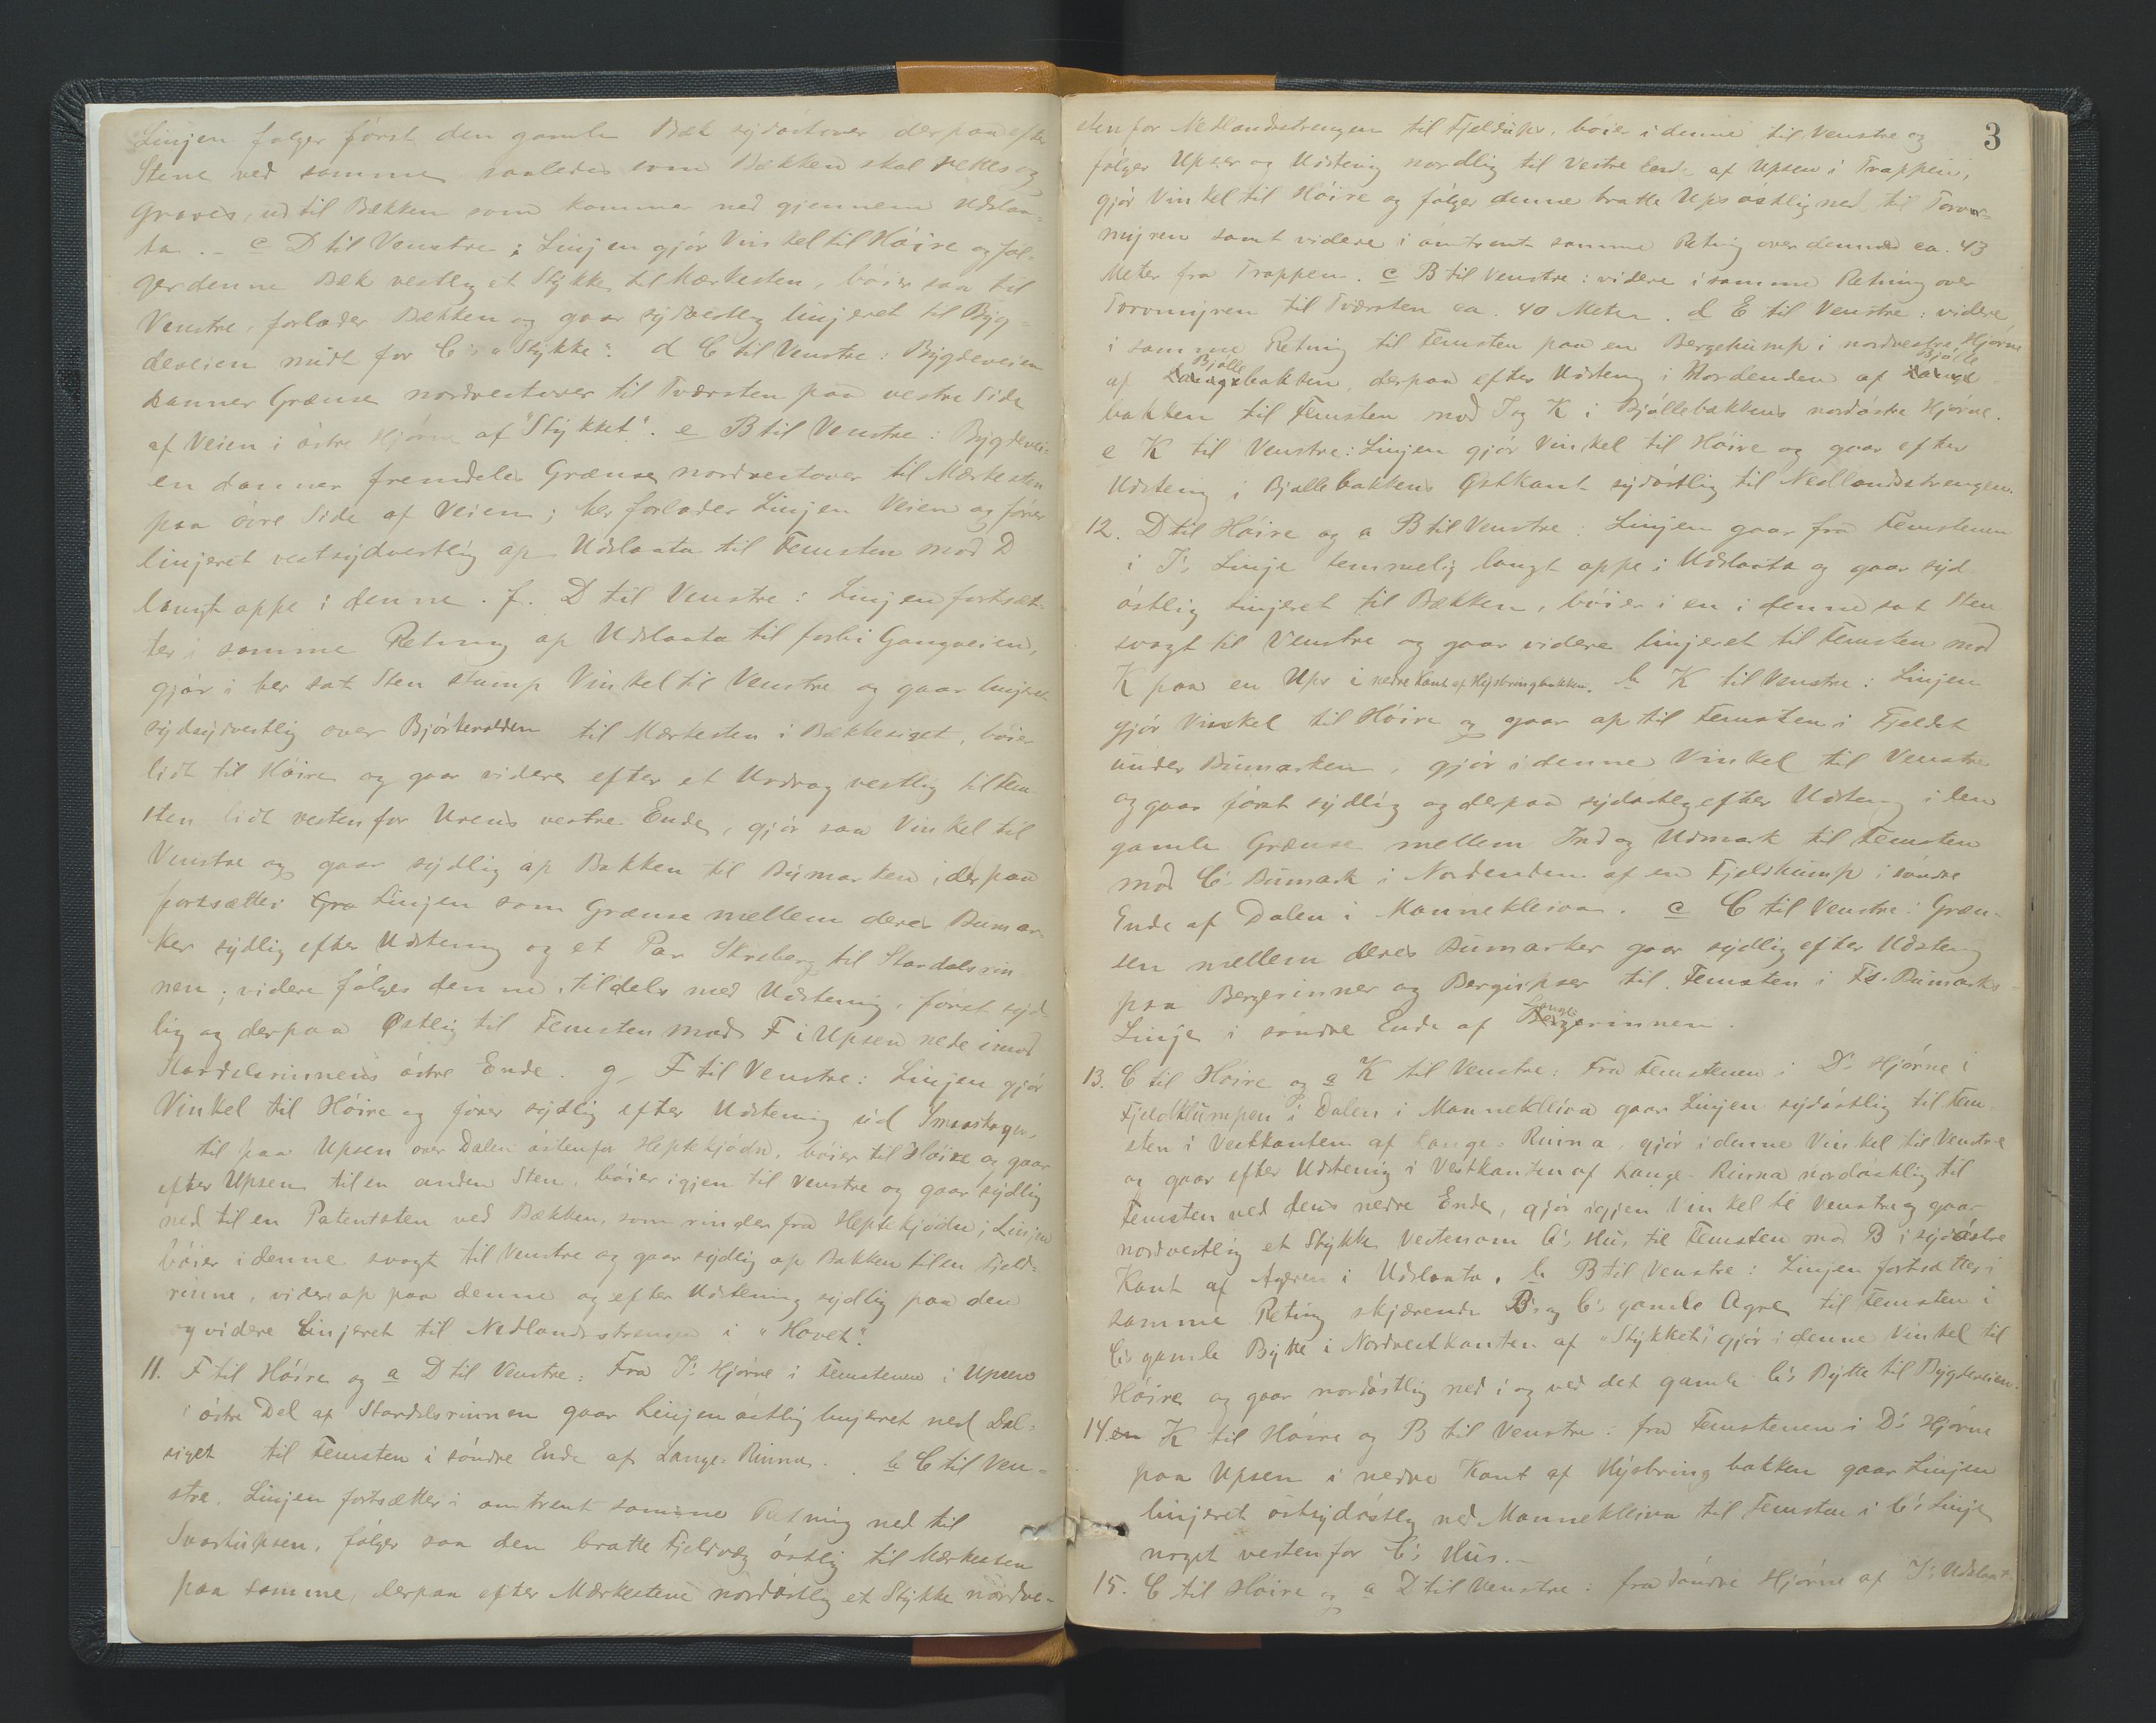 Linjen følger først den gamle Bæk sydøstover derpaa efter
Stene ved samme saaledes som Bækken skal rettes og
graves, ud til Bækken som kommer ned gjennem Udslaa-
ta. - c D til Venstre; Linjen gjør Vinkel til Høire og føl-
ger denne Bæk vestlig et Stykke til Mærkesten, bøier saa til
Venstre, forlader Bækken og gaar sydvestlig linjeret til Byg-
deveien midt for C's "Stykke". d C til Venstre: Bygdeveien
danner Grænse nordvestover til Tværsten paa vestre Side
af Veien i østre Hjørne af "Stykket". e B til Venstre: Bygdevei-
en danner fremdeles Grænse nordvestover til Mærkesten
paa øvre Side af Veien; her forlader Linjen Veien og fører
linjeret vestsydvestlig op Udslaata til Femsten mod D
langt oppe i denne. f. D til Venstre: Linjen fortsæt-
ter i samme Retning op Udslaata til forbi Gangveien,
gjør i her sat Sten stump Vinkel til Venstre og gaar linjeret
sydsydvestlig over Bjørkeralden til Mærkesten i Bækkesiget, bøier
lidt til Høire og gaar videre efter et Uddrag vestlig til Fem-
sten lidt vestenfor Urens vestre Ende, gjør saa Vinkel til
Venstre og gaar sydlig op Bakken til Bumarken; derpaa
fortsætter Gra Linjen som Grænse mellem deres Bumar-
ker sydlig efter Udstening og et Par Skreberg til Stordalsrin
nen; videre følges denne, tildels med Udstening, først syd-
lig og derpaa Østlig til Femsten mod F i Upsen nede imod
Stordalsrinnens østre Ende. g F til Venstre: Linjen gjør
Vinkel til Høire og fører sydlig efter Udstening ud Smaaskogen,
til paa Upsen over Dalen østenfor Heptekjødn, bøier til Høire og gaar
efter Upsen til en anden Sten, bøier igjen til Venstre og gaar sydlig
ned til en Patentsten ved Bækken, som rinder fra Heptekjødn; Linjen
bøier i denne svagt til Venstre og gaar sydlig op Bakken til en Fjeld-
rinne, videre op paa denne og efter Udstening sydlig paa den
og videre Linjeret til Nedlandsstrengen i "Hovet".
11. F til Høire og a D til Venstre: Fra J's Hjørne i Femstenen i Upsen
i østre Del af Stordalsrinnen gaar Linjen østlig linjeret ned Dal-
siget til Femsten i søndre Ende af Lange-Rinna. b C til Ven-
stre. Linjen fortsætter i omtrent samme Retning ned til
Svartupsen, følger saa den bratte Fjeldvæg østlig til Mærkesten
paa samme, derpaa efter Mærkestene nordøstlig et Stykke nordve-
3
stenfor Nedlandsstrengen til Fjeldups, bøier i denne til Venstre og
følger Upser og Udstening nordlig til Vestre Ende af Upsen i Trappen,
gjør Vinkel til Høire og følger denne bratte Ups østlig ned til Torv-
myren samt videre i omtrent samme Retning over denne ca. 43
Meter fra Trappen. c B til Venstre: videre i samme Retning over
Torvmyren til Tværsten ca. 40 Meter. d E til Venstre: videre
i samme Retning til Femsten paa en Bergklump i nordvestre Hjørne
af Bjølle bakken, derpaa efter Udstening i Nordenden af Bjølle
bakken til Femsten mod J og K i Bjøllebakkens nordøstre Hjørne.
e K til Venstre: Linjen gjør Vinkel til Høire og gaar efter
Udstening i Bjøllebakkens Østkant sydøstlig til Nedlandsstrengen.
12. D til Høire og a B til Venstre: Linjen gaar fra Femstenen
i J's Linje temmelig langt oppe i Udslaata og gaar syd
østlig Linjeret til Bækken, bøier i en i denne sat Sten
svagt til Venstre og gaar videre linjeret til Femsten mod
K paa en Ups i nedre Kant af Hysbringbakken. b K til Venstre: Linjen
gjør Vinkel til Høire og gaar op til Femsten i Fjeldet
under Bumarken, gjør i denne Vinkel til Venstre
og gaar først sydlig og derpaa sydøstlig efter Udstening i den
gamle Grænse mellem Ind og Udmark til Femsten
mod C's Bumark i Nordenden af en Fjeldklump i søndre
Ende af Dalen i Mannekleiva. c C til Venstre: Græn-
sen mellem deres Bumarker gaar sydlig efter Udstening
paa Bergrinner og Bergupser til Femsten i F's Bumarks-
Linje i søndre Ende af Langerinnen.
13. C til Høire og a K til Venstre: Fra Femstenen i D's Hjørne i
Fjeldklumpen i Dalen i Mannekleiva gaar Linjen sydøstlig til Fem
sten i Vestkanten af Lange-Rinna, gjør i denne Vinkel til Venstre
og gaar efter Udstening i Vestkanten af Lange-Rinna nordøstlig til
Femsten ved dens nedre Ende, gjør igjen Vinkel til Venstre og gaar
nordvestlig et Stykke Vestenom C's Hus til Femsten mod B i sydøstre
Kant af Ageren i Udslaata. b B til Venstre: Linjen fortsætter i
samme Retning skjærende B's og C's gamle Agre til Femsten i
C's gamle Bytte i Nordvestkanten af "Stykket"; gjør i denne Vinkel til
Høire og gaar nordøstlig ned i og ved det gamle C's Bytte til Bygdeveien.
14. en K til Høire og B til Venstre: fra Femstenen i D's Hjørne
paa Upsen i nedre Kant af Hysbring bakken gaar Linjen
linjeret østsydøstlig ned Mannekleiva til Femsten i C's Linje
noget vestenfor C's Hus. -
15. C til Høire og a D til Venstre: fra søndre Hjørne af J's Udslaat-